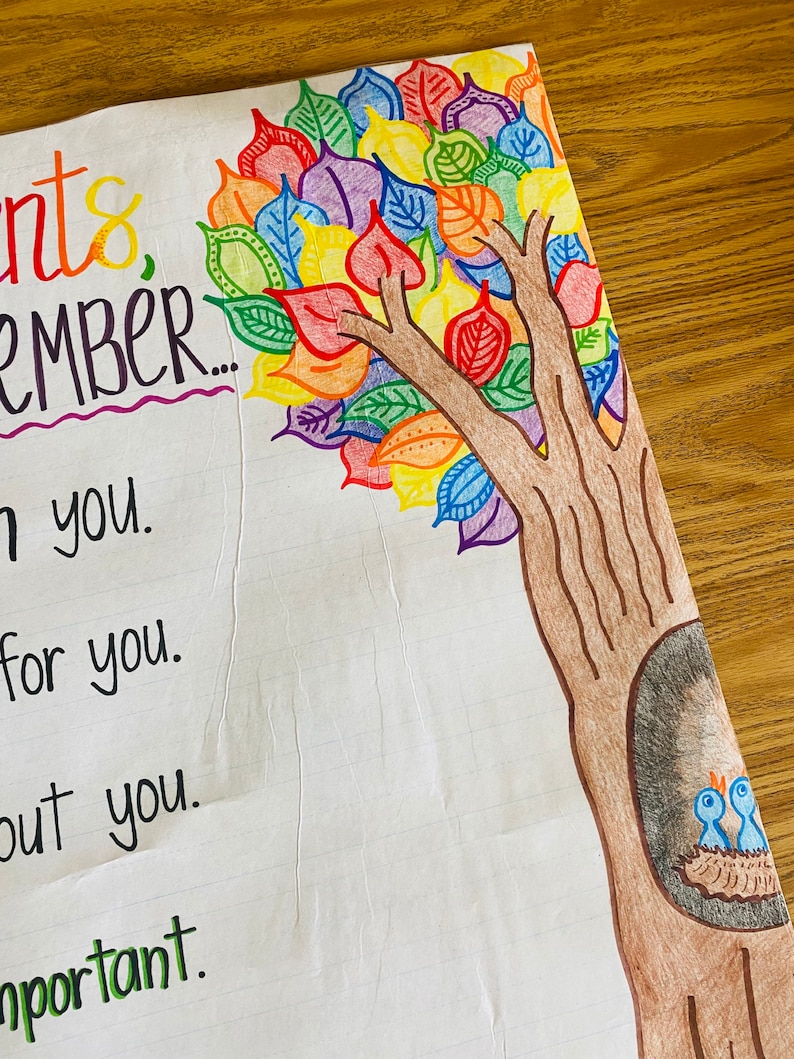 nts,
EMBER...
you.
for you.
out you.
mportant.